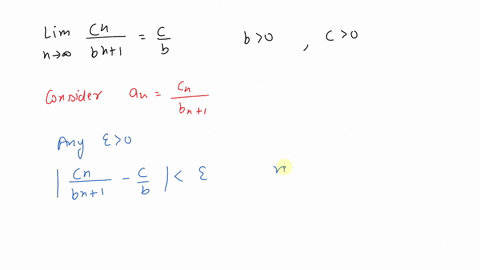 Lim n→∞ cn/bn+1 = c/b b>0 , c>0
Consider an = cn/bn+1
Any ε>0
| cn/bn+1 - c/b | < ε